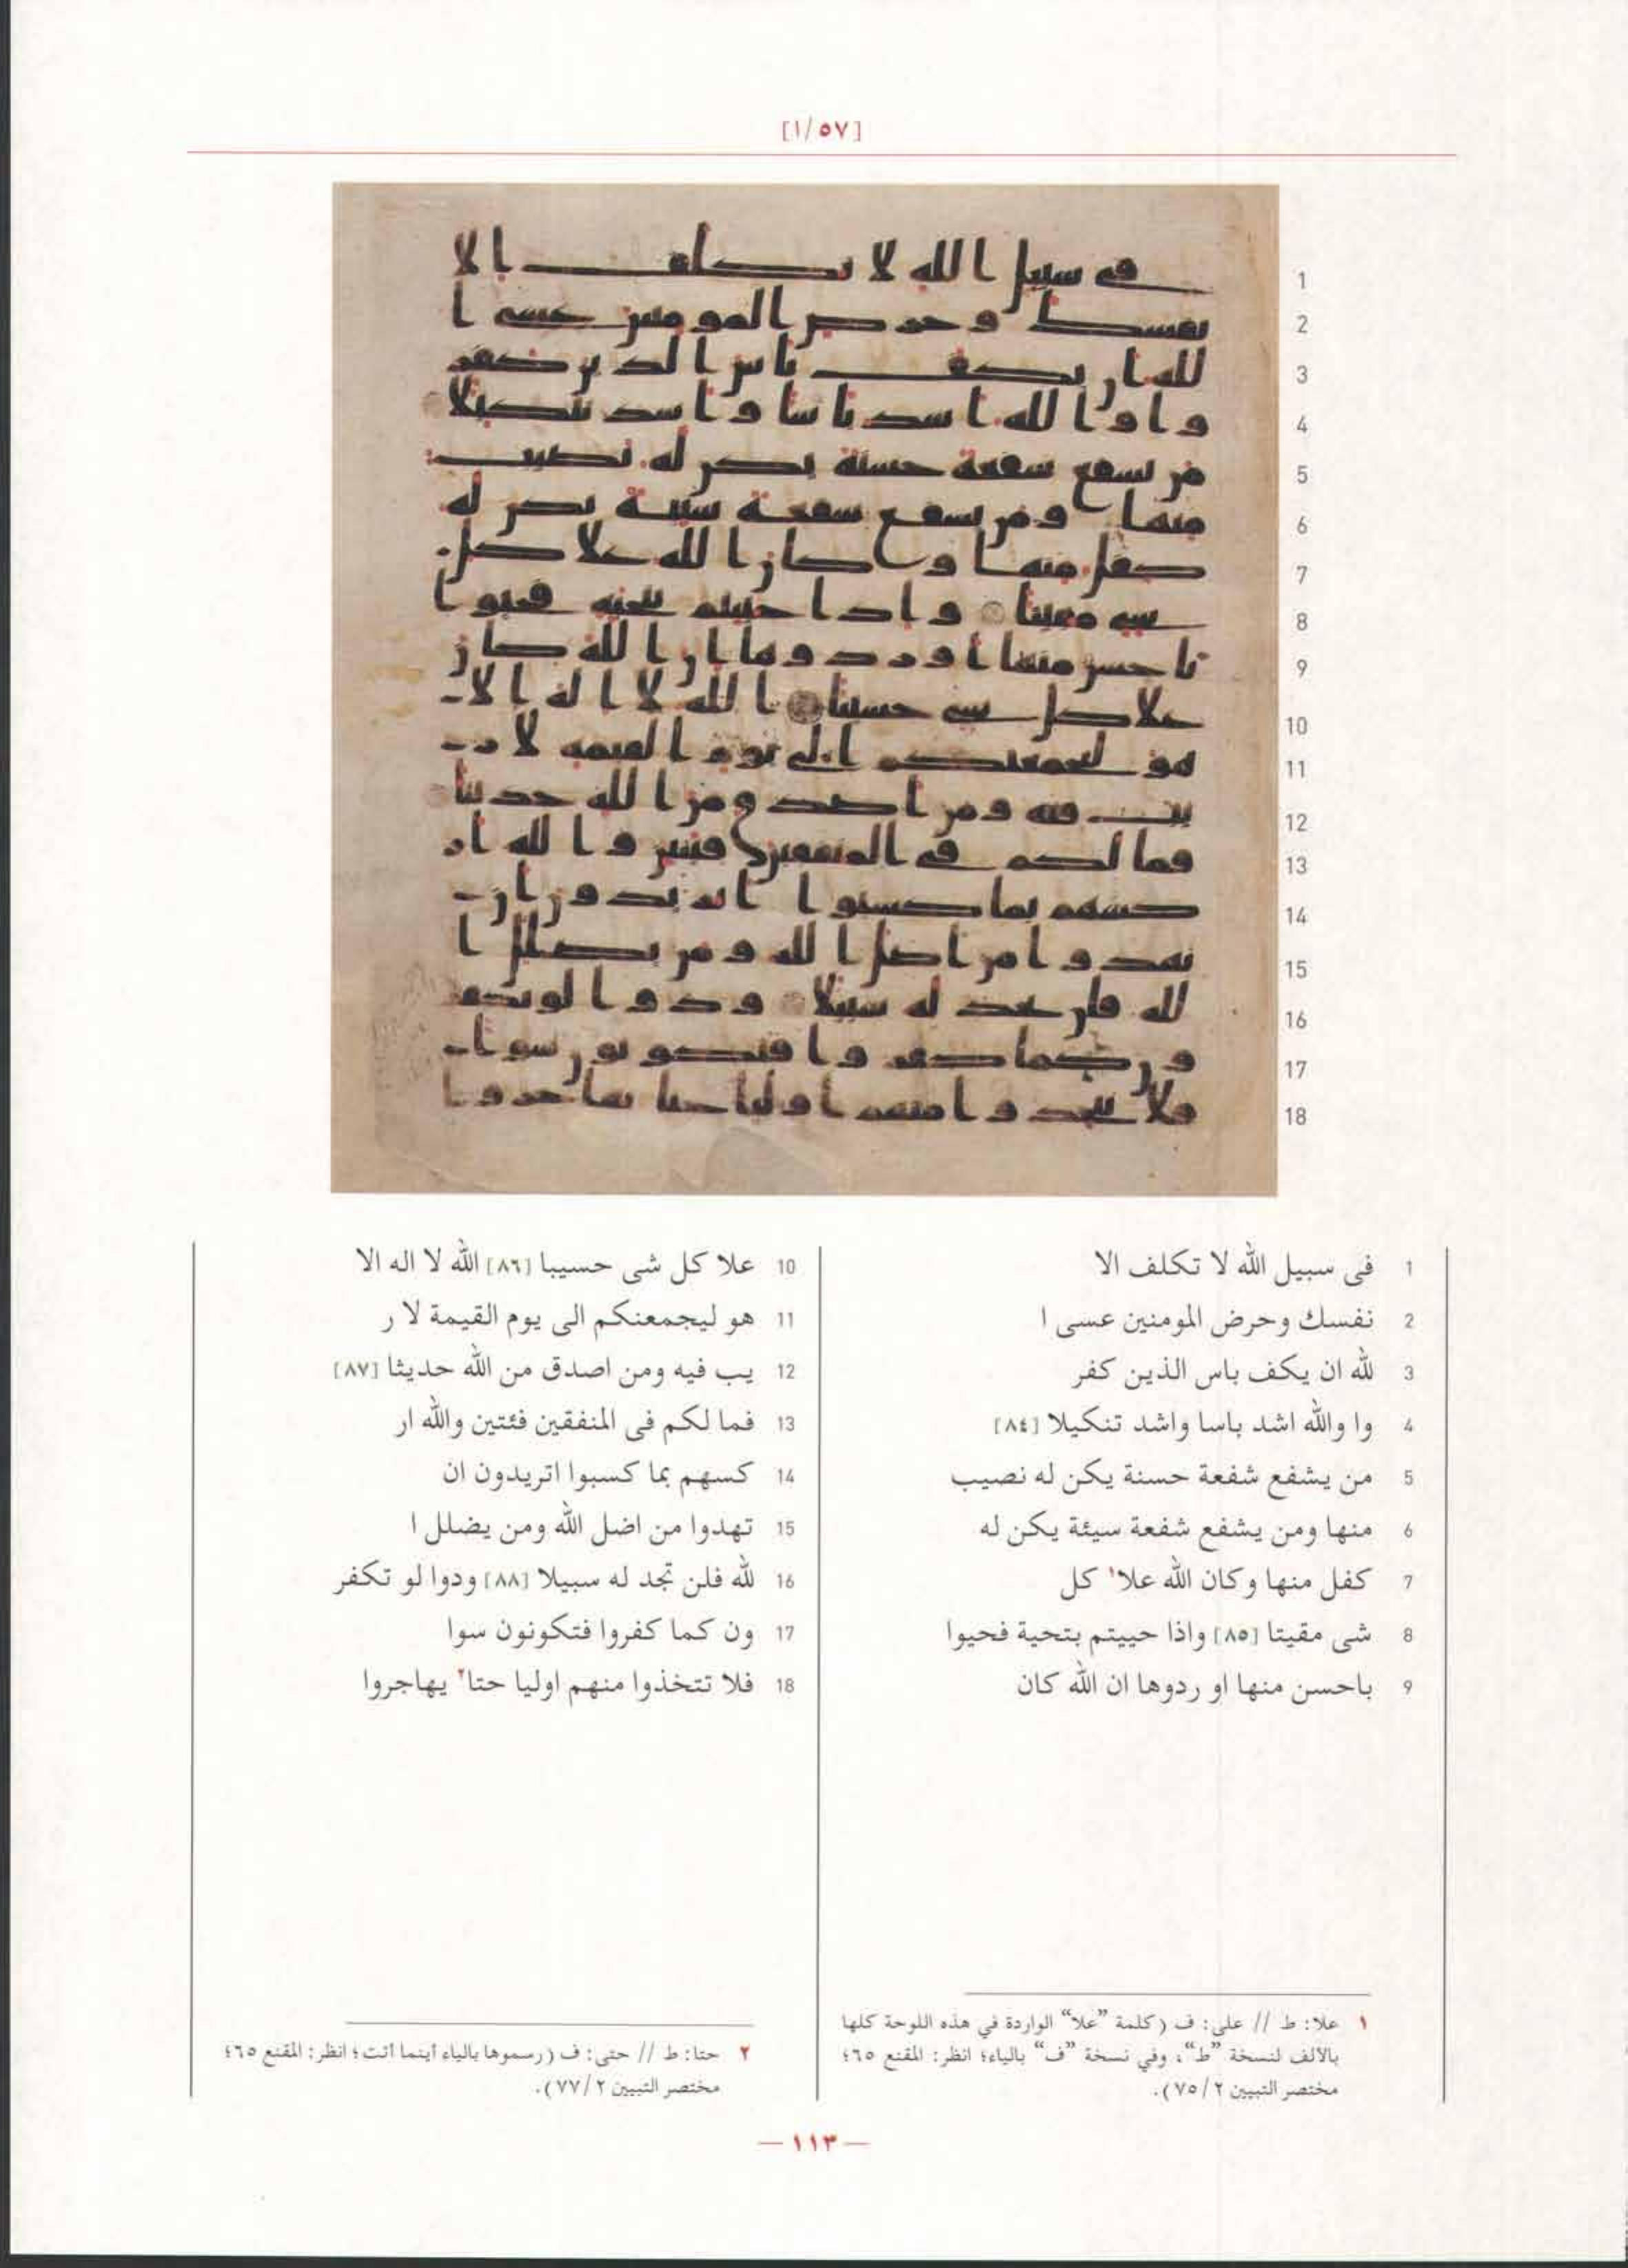 [١/٥٧]
1 فى سبيل الله لا تكلف الا
2 نفسك وحرض المومنين عسى ا
3 لله ان يكف باس الذين كفر
4 وا والله اشد باسا واشد تنكيلا [٨٤]
5 من يشفع شفعة حسنة يكن له نصيب
6 منها ومن يشفع شفعة سيئة يكن له
7 كفل منها وكان الله علا١ كل
8 شى مقيتا [٨٥] واذا حييتم بتحية فحيوا
9 باحسن منها او ردوها ان الله كان
10 علا كل شى حسيبا [٨٦] الله لا اله الا
11 هو ليجمعنكم الى يوم القيمة لا ر
12 يب فيه ومن اصدق من الله حديثا [٨٧]
13 فما لكم فى المنفقين فئتين والله ار
14 كسهم بما كسبوا اتريدون ان
15 تهدوا من اضل الله ومن يضلل ا
16 لله فلن تجد له سبيلا [٨٨] ودوا لو تكفر
17 ون كما كفروا فتكونون سوا
18 فلا تتخذوا منهم اوليا حتا٢ يهاجروا
١ علا: ط // على: ف (كلمة "علا" الواردة في هذه اللوحة كلها
بالألف لنسخة "ط"، وفي نسخة "ف" بالياء؛ انظر: المقنع ٦٥؛
مختصر التبيين ٧٥/٢).
٢ حتا: ط // حتى: ف (رسموها بالياء أينما أتت؛ انظر: المقنع ٦٥؛
مختصر التبيين ٧٧/٢).
— ١١٣ —